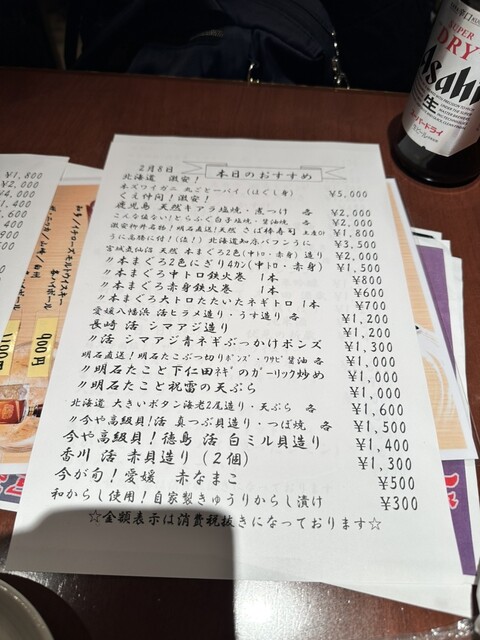 2月8日
本日のおすすめ
北海道 激安!
本ズワイガニ 丸ごと一パイ(ほぐし身) ¥5,000
ぐえ仲間!激安!
鹿児島 天然キアラ塩焼・煮つけ 各 ¥2,000
こんな値ない!とらふぐ白子塩焼・醤油焼 各 ¥2,000
¥1,800
¥3,500
宮城気仙沼 天然 本まぐろ2色(中トロ・赤身)造り ¥2,000
〃本まぐろ2色にぎり4カン(中トロ・赤身) ¥1,500
〃本まぐろ中トロ鉄火巻 1本 ¥800
〃本まぐろ赤身鉄火巻 1本 ¥600
〃本まぐろ大トロたたいたネギトロ 1本 ¥700
愛媛八幡浜 活ヒラメ造り・うす造り 各 ¥1,200
長崎 活 シマアジ造り ¥1,200
〃活 シマアジ青ネギぶっかけポンズ ¥1,300
明石直送!明石たこぶつ切りポンズ・ワサビ醤油 各 ¥1,000
〃明石たこと下仁田ネギのガーリック炒め ¥1,000
〃明石たこと祝蕾の天ぷら ¥1,000
北海道 大きいボタン海老2尾造り・天ぷら 各 ¥1,600
〃今や高級貝!活 真つぶ貝造り・つぼ焼 各 ¥1,500
今や高級貝!徳島 活 白ミル貝造り ¥1,400
香川 活 赤貝造り(2個) ¥1,300
今が旬!愛媛 赤なまこ ¥500
和からし使用!自家製きゅうりからし漬け ¥300
☆金額表示は消費税抜きになっております☆
SUPER
DRY
Asahi
生
¥1,800
900円